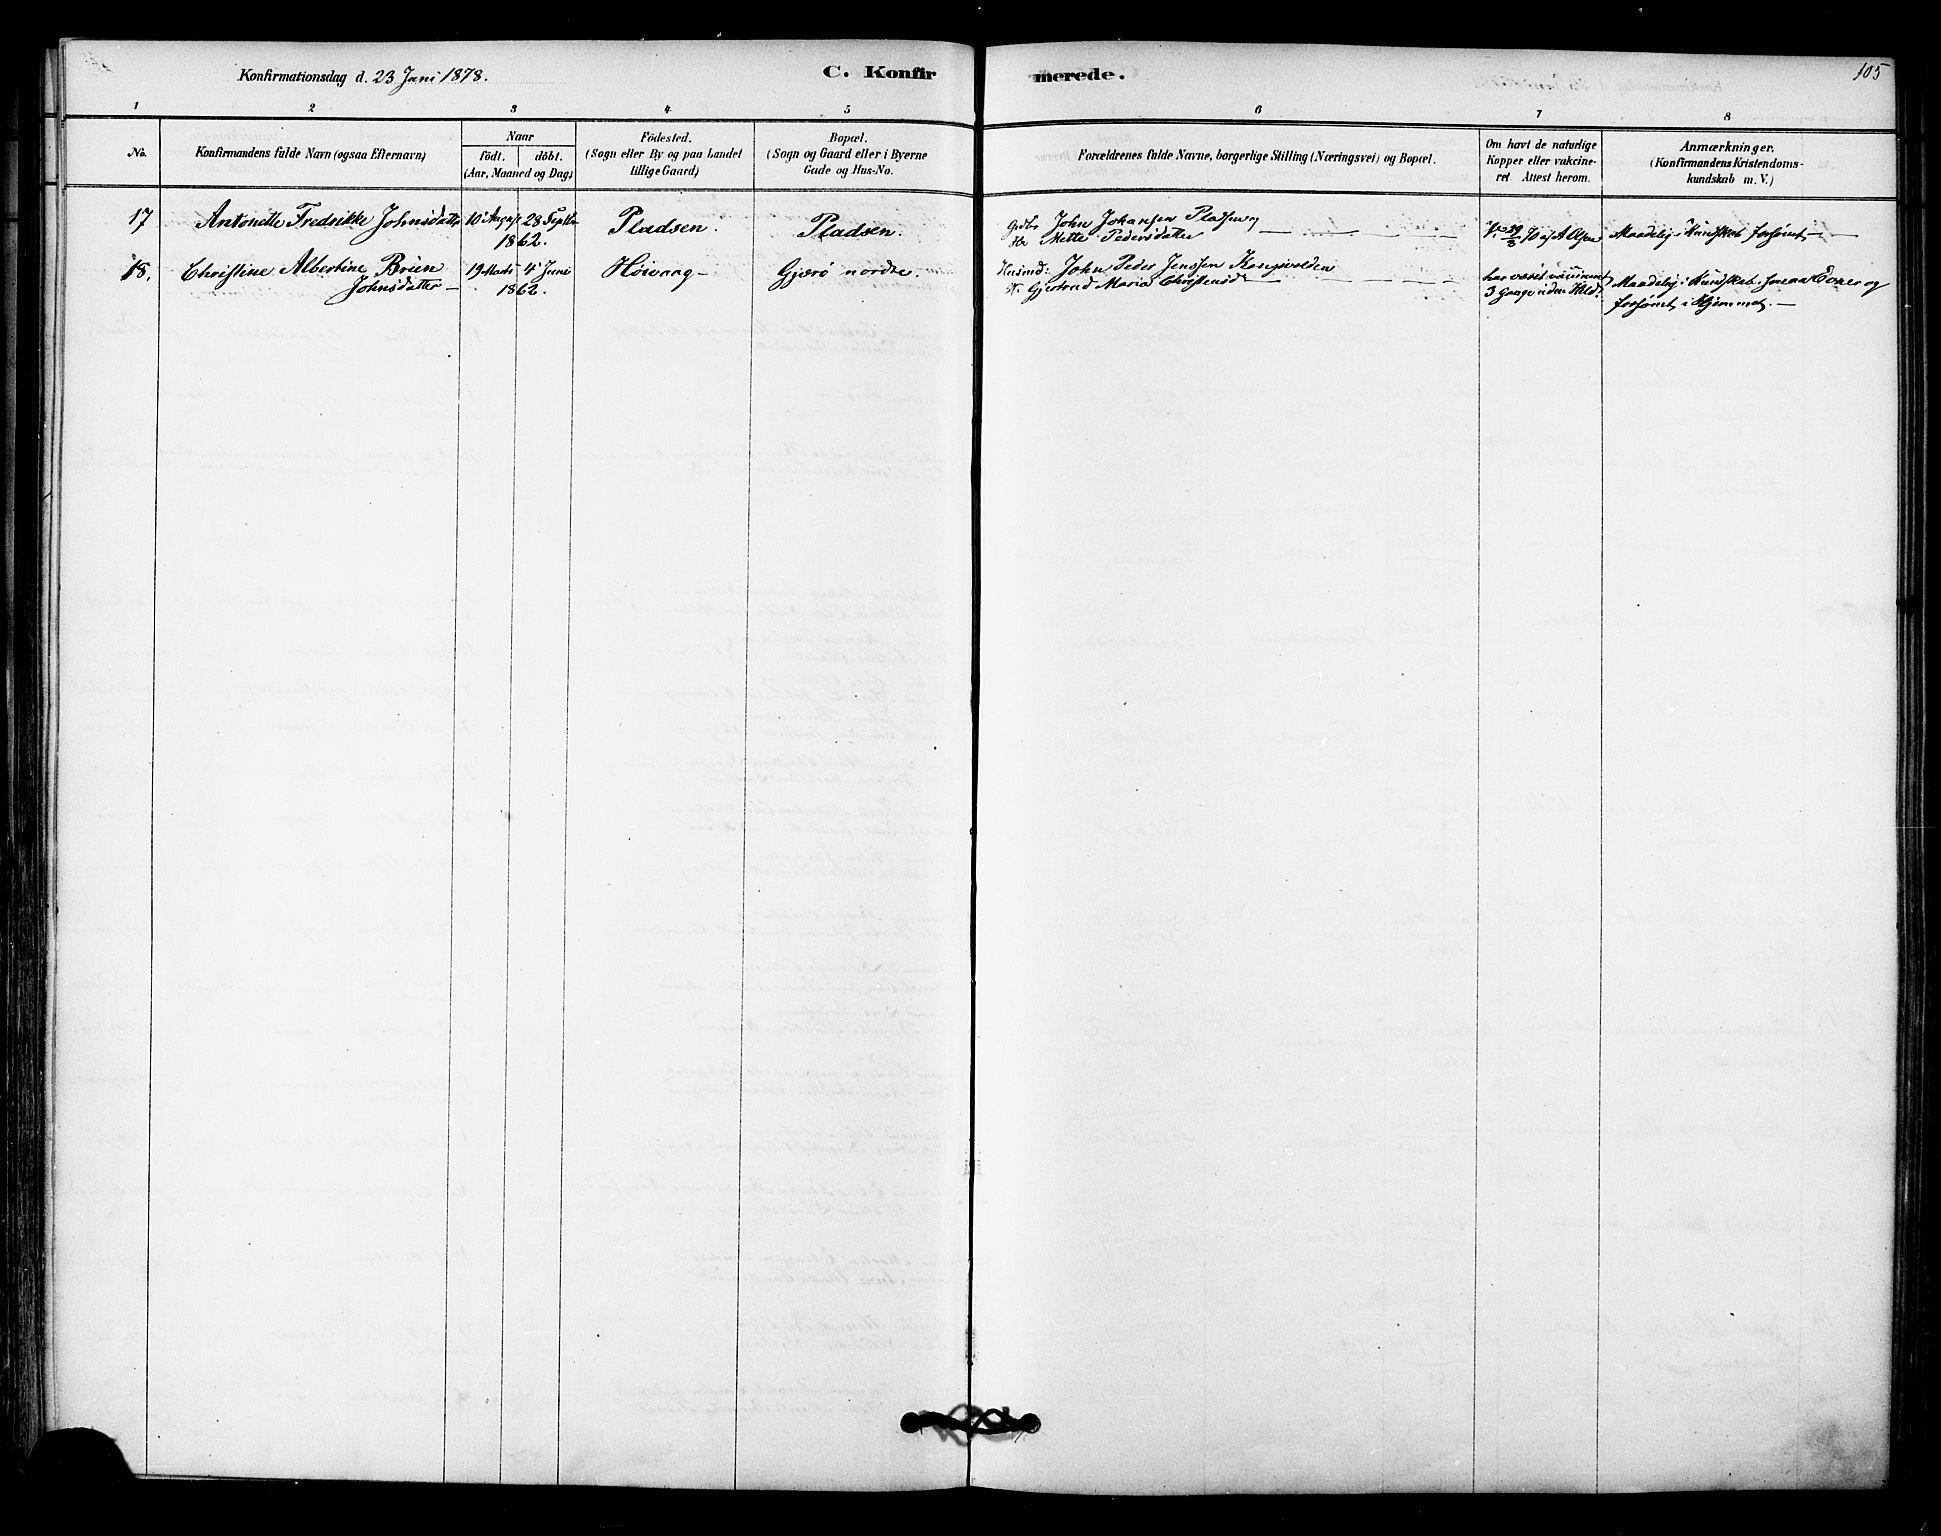 Konfirmationsdag d. 23 Juni 1878.
C. Konfirmerede.
105
1 2 3 4 5 6 7 8
No.
Konfirmandens fulde Navn (ogsaa Efternavn)
Naar
födt. döbt.
(Aar, Maaned og Dag)
Födested.
(Sogn eller By og paa Landet
tillige Gaard)
Bopæl.
(Sogn og Gaard eller i Byerne
Gade og Hus-No.
Forældrenes fulde Navne, borgerlige Stilling (Næringsvei) og Bopæl.
Om havt de naturlige
Kopper eller vakcine-
ret Attest herom.
Anmærkninger.
(Konfirmandens Kristendoms-
kundskab m. V.)
17 Antonette Fredrikke Johnsdatter 10 Aug 28 Septbr Pladsen. Pladsen. John Johansen Pladsen og 70 af A Olsen Maadelig i Kundskab forsömt
1862. Mette Pedersdatter
18. Christine Albertine Brien 19 Marts 4 Juni Höivaag Gjærö nordre. Husmd: John Peder Jenssen Kongsvolden har været vaccineret Maadelig i Kundskab. Evner og
Johnsdatter 1862. Gjertrud Maria Christensd 3 Gange uden Held. forsömt i Hjemmet.